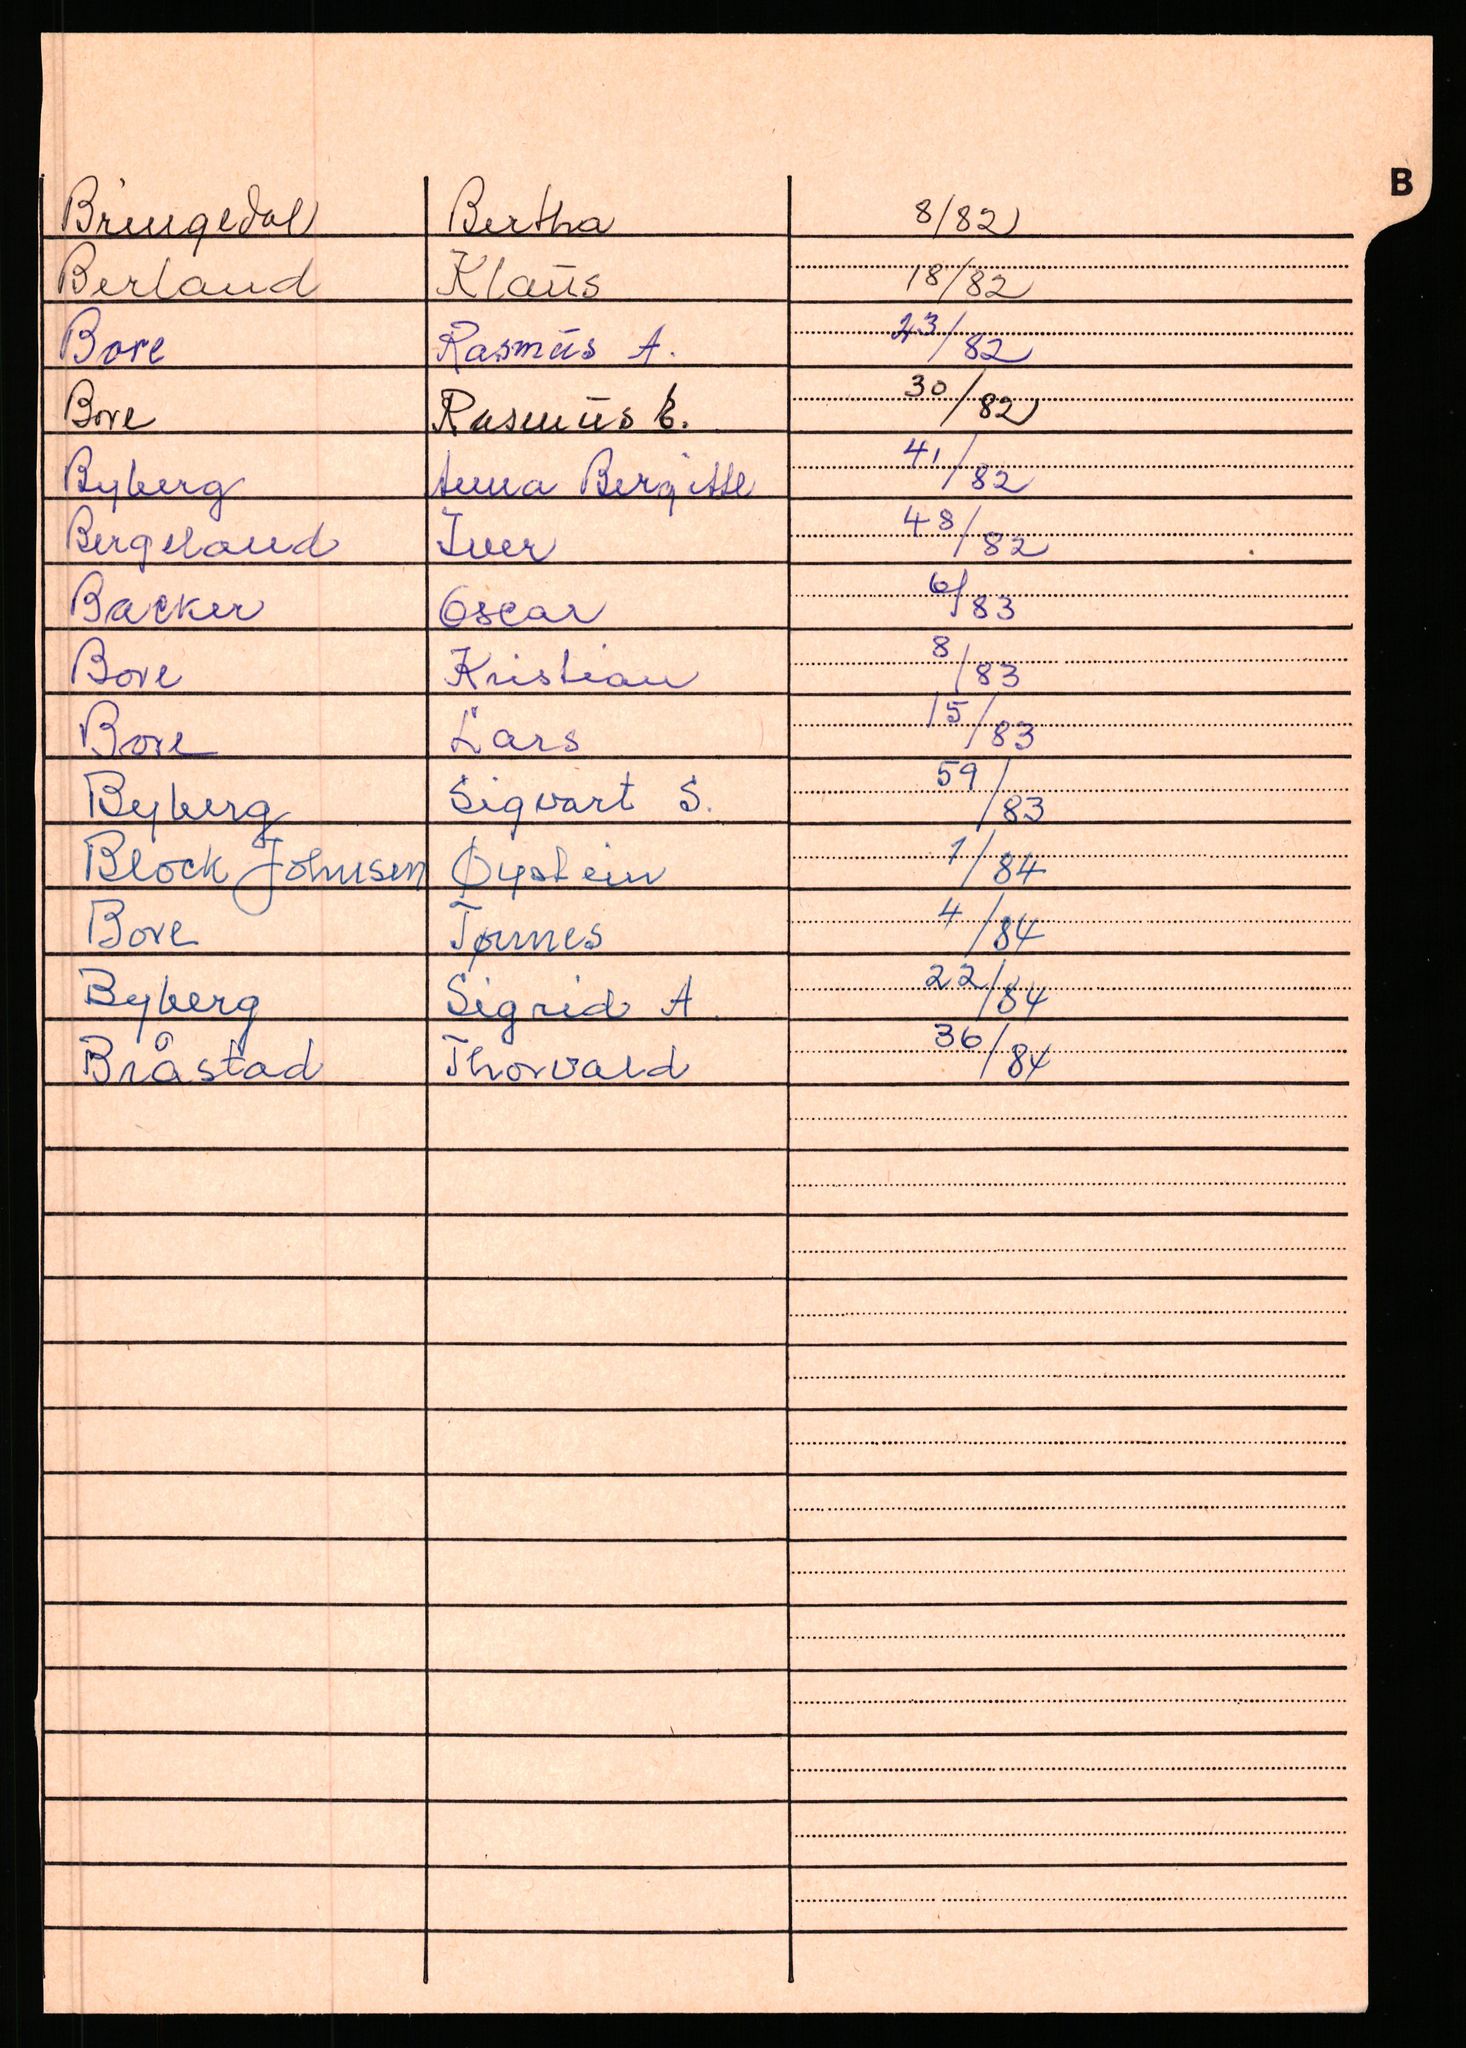 B
Bringedal Bertha 8/82
Berland Klaus 18/82
Bore Rasmus A. 23/82
Bore Rasmus E. 30/82
Byberg Anna Bergitte 41/82
Bergeland Iver 48/82
Backer Oscar 6/83
Bore Kristian 8/83
Bore Lars 15/83
Byberg Sigvart S. 59/83
Block Johnsen Øystein 1/84
Bore Tønnes 4/84
Byberg Sigrid A. 22/84
Bråstad Thorvald 36/84